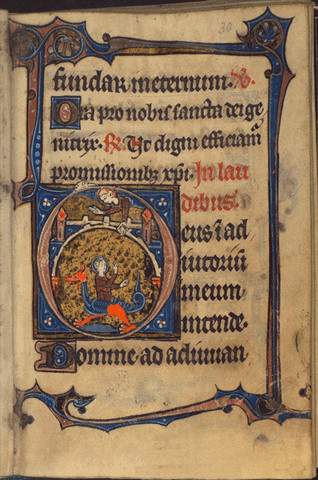 30
fundar in eternum. V.
Ora pro nobis sancta dei ge
nitrix. R. Ut digni efficiam̄
promissionibz xp̄i. In lau
dibus.
Deus ī ad
iutoriū
meum
intende.
Domine ad adiuuan